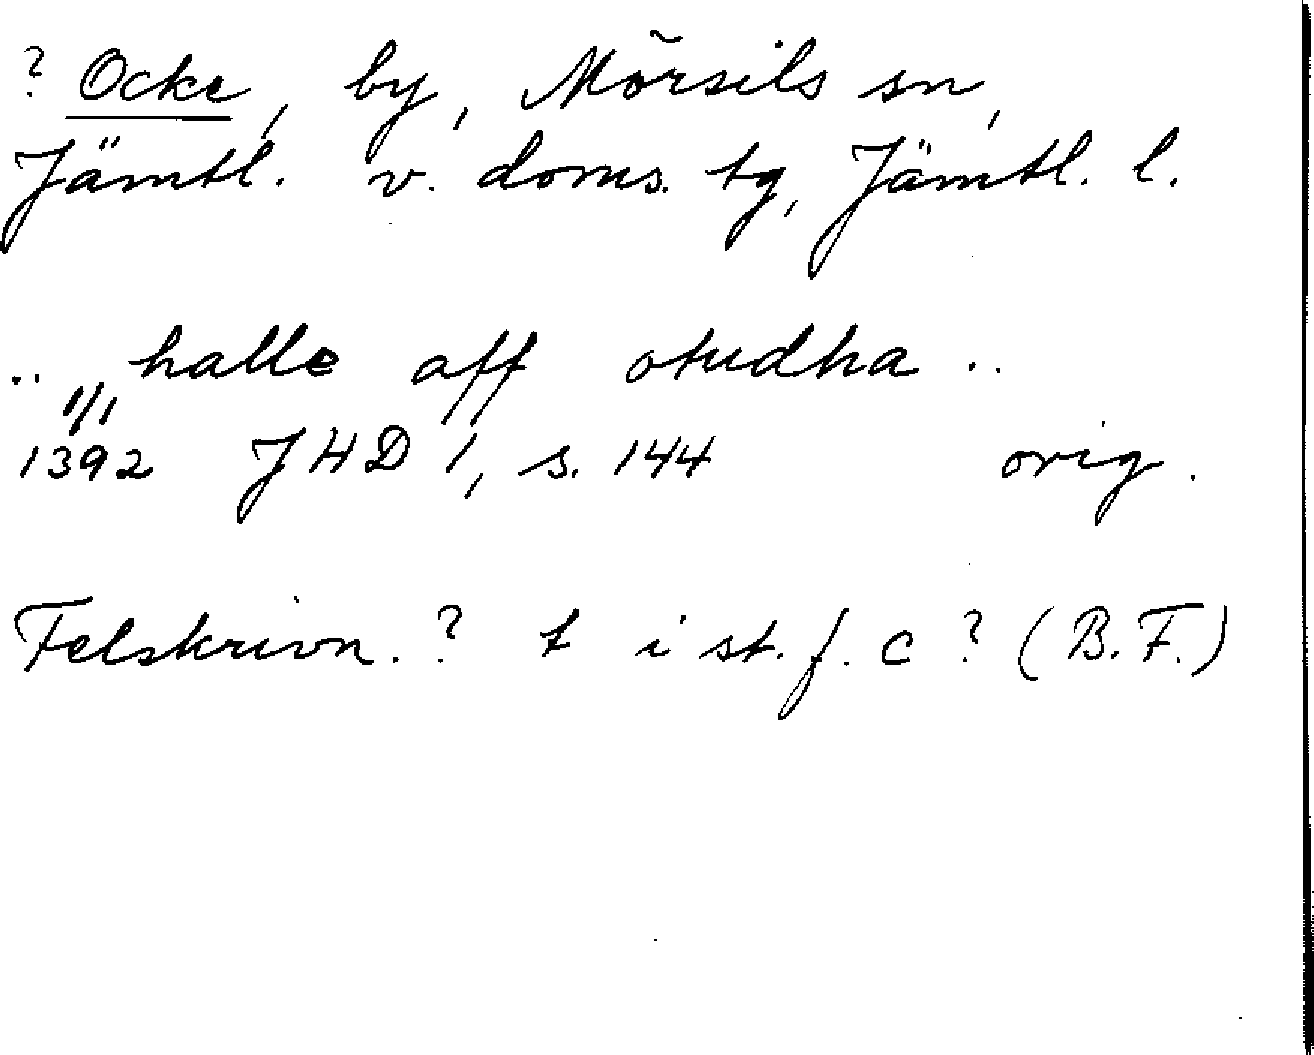 ? Ocke, by, Mörsils sn,
Jämtl. v. doms. tg, Jämtl. l.
.. halle aff otudha ..
1/1
1392 JHD 1, s. 144 orig.
Felskrivn. ? t i st. f. c ? (B.F.)